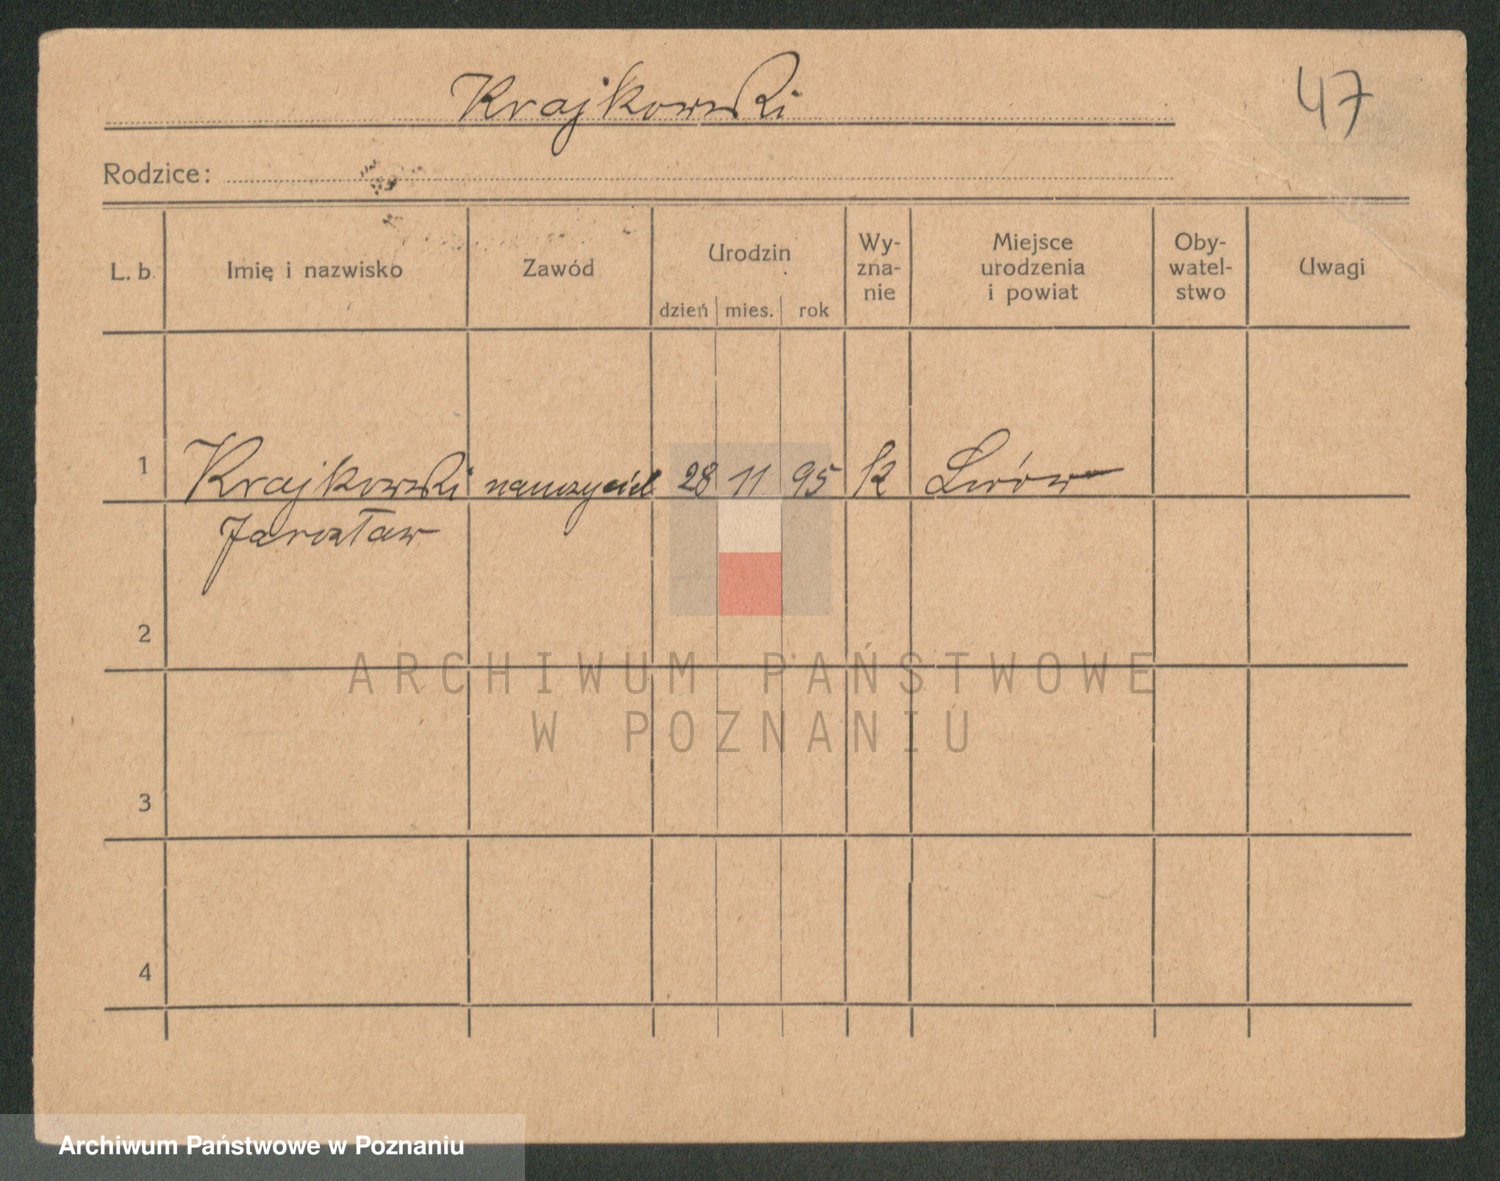 Krajkowski
47
Rodzice:
L. b. Imię i nazwisko Zawód Urodzin dzień mies. rok Wy-zna-nie Miejsce urodzenia i powiat Oby-watel-stwo Uwagi
1 Krajkowski nauczyciel 28 11 95 k Lwów
Jarosław
2
3
4
ARCHIWUM PAŃSTWOWE
W POZNANIU
Archiwum Państwowe w Poznaniu